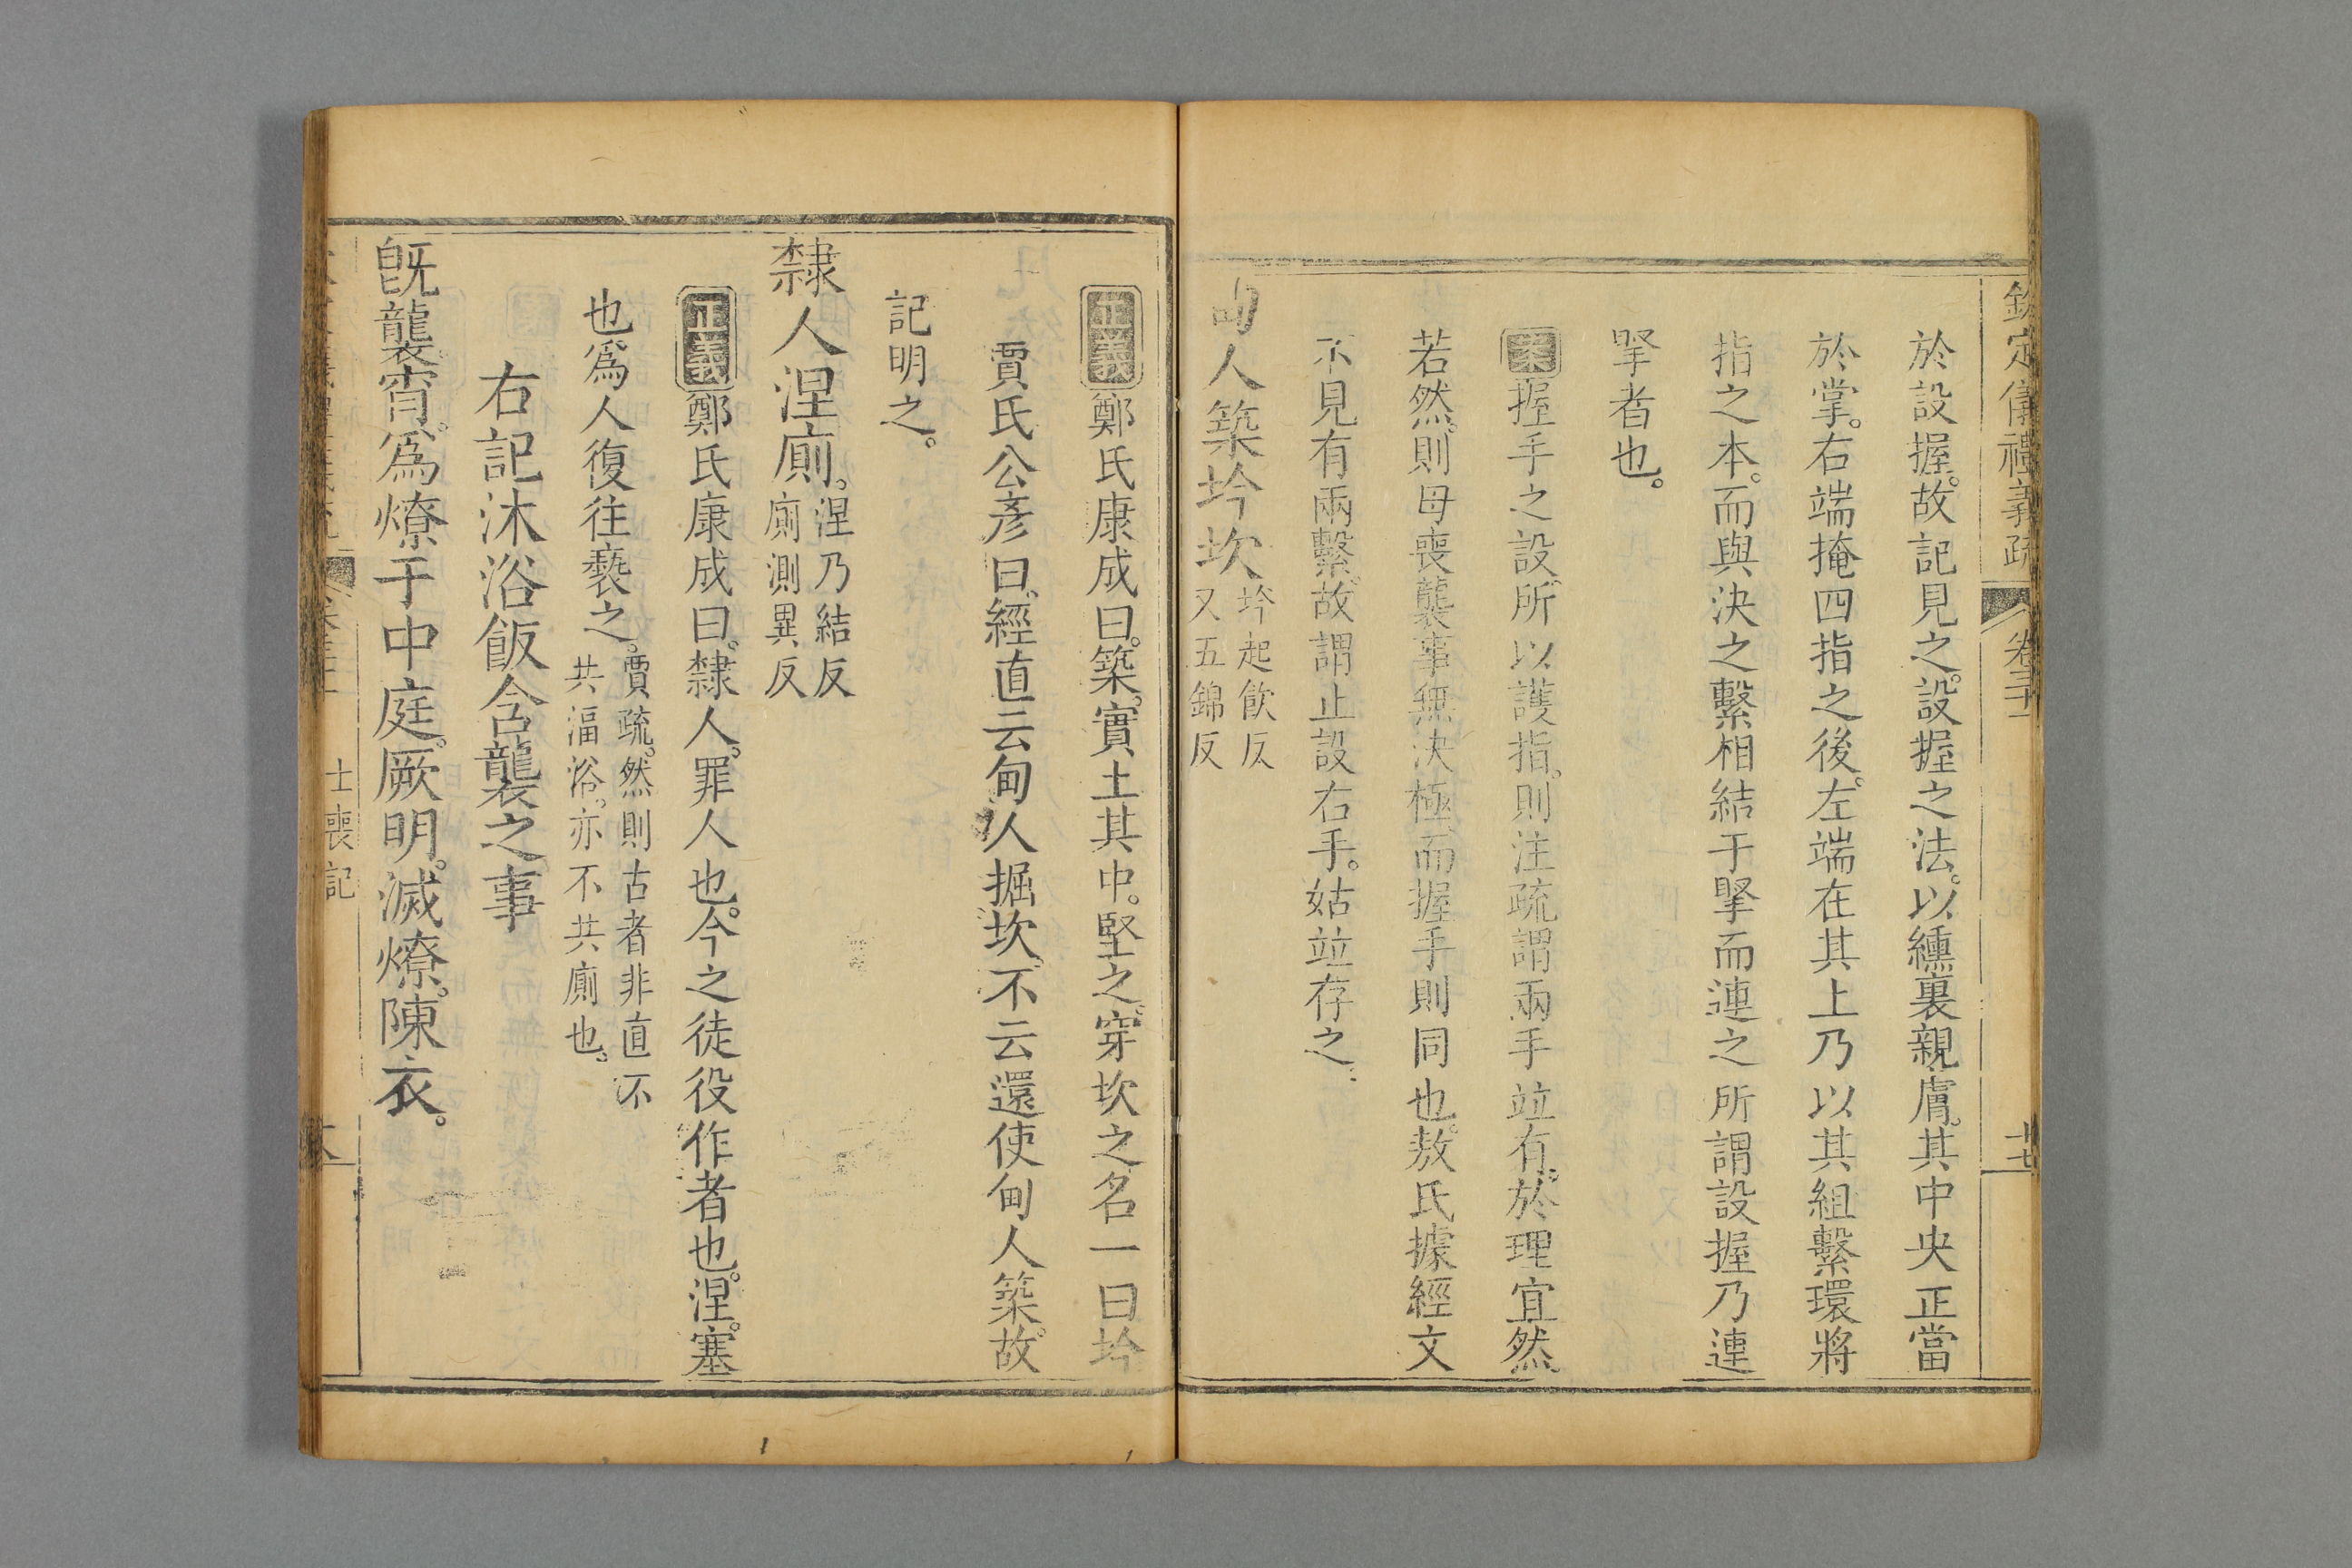 欽定儀禮義疏 卷三十一 十七
於設握。故記見之。設握之法。以纁裏親膚。其中央正當
於掌。右端掩四指之後。左端在其上乃以其組繫環將
指之本。而與決之繫相結于掔而連之所謂設握乃連
掔者也。
案握手之設。所以護指。則注疏謂兩手並有。於理宜然
若然。則母喪襲事無決極。而握手則同也。敖氏據經文
不見有兩繫。故謂止設右手。姑並存之
甸人築坅坎
坅起飲反
又五錦反
正義鄭氏康成曰。築。實土其中。堅之。穿坎之名一曰坅
賈氏公彥曰。經直云甸人掘坎。不云還使甸人築。故
記明之。
隸人涅廁。
涅乃結反
廁測異反
正義鄭氏康成曰。隸人。罪人也。今之徒役作者也。涅。塞
也。爲人復往褻之。
賈疏。然則古者非直不
共湢浴。亦不共廁也。
右記沐浴飯含襲之事
旣襲。宵爲燎于中庭。厥明。滅燎。陳衣。
士喪記